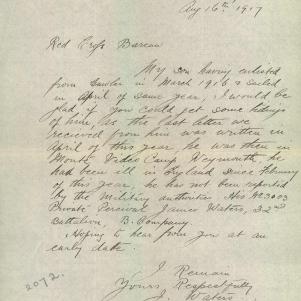 Aug 16th 1917
Red Cross Bureau
My son having enlisted
from Gawler in March 1916 & sailed
in April of same year, I would be
glad if you could get some tidings
of him, as the last letter we
recieved from him was written in
April of this year, he was then in
Monte Video Camp Weymouth, he
had been ill in England since February
of this year, he has not been reported
by the Military authorities His No 3003
Private Percival James Waters, 32nd
Battalion, B. Company.
Hoping to hear from you at an
early date.
I Remain
Yours Respectfully
J. Waters
2072.